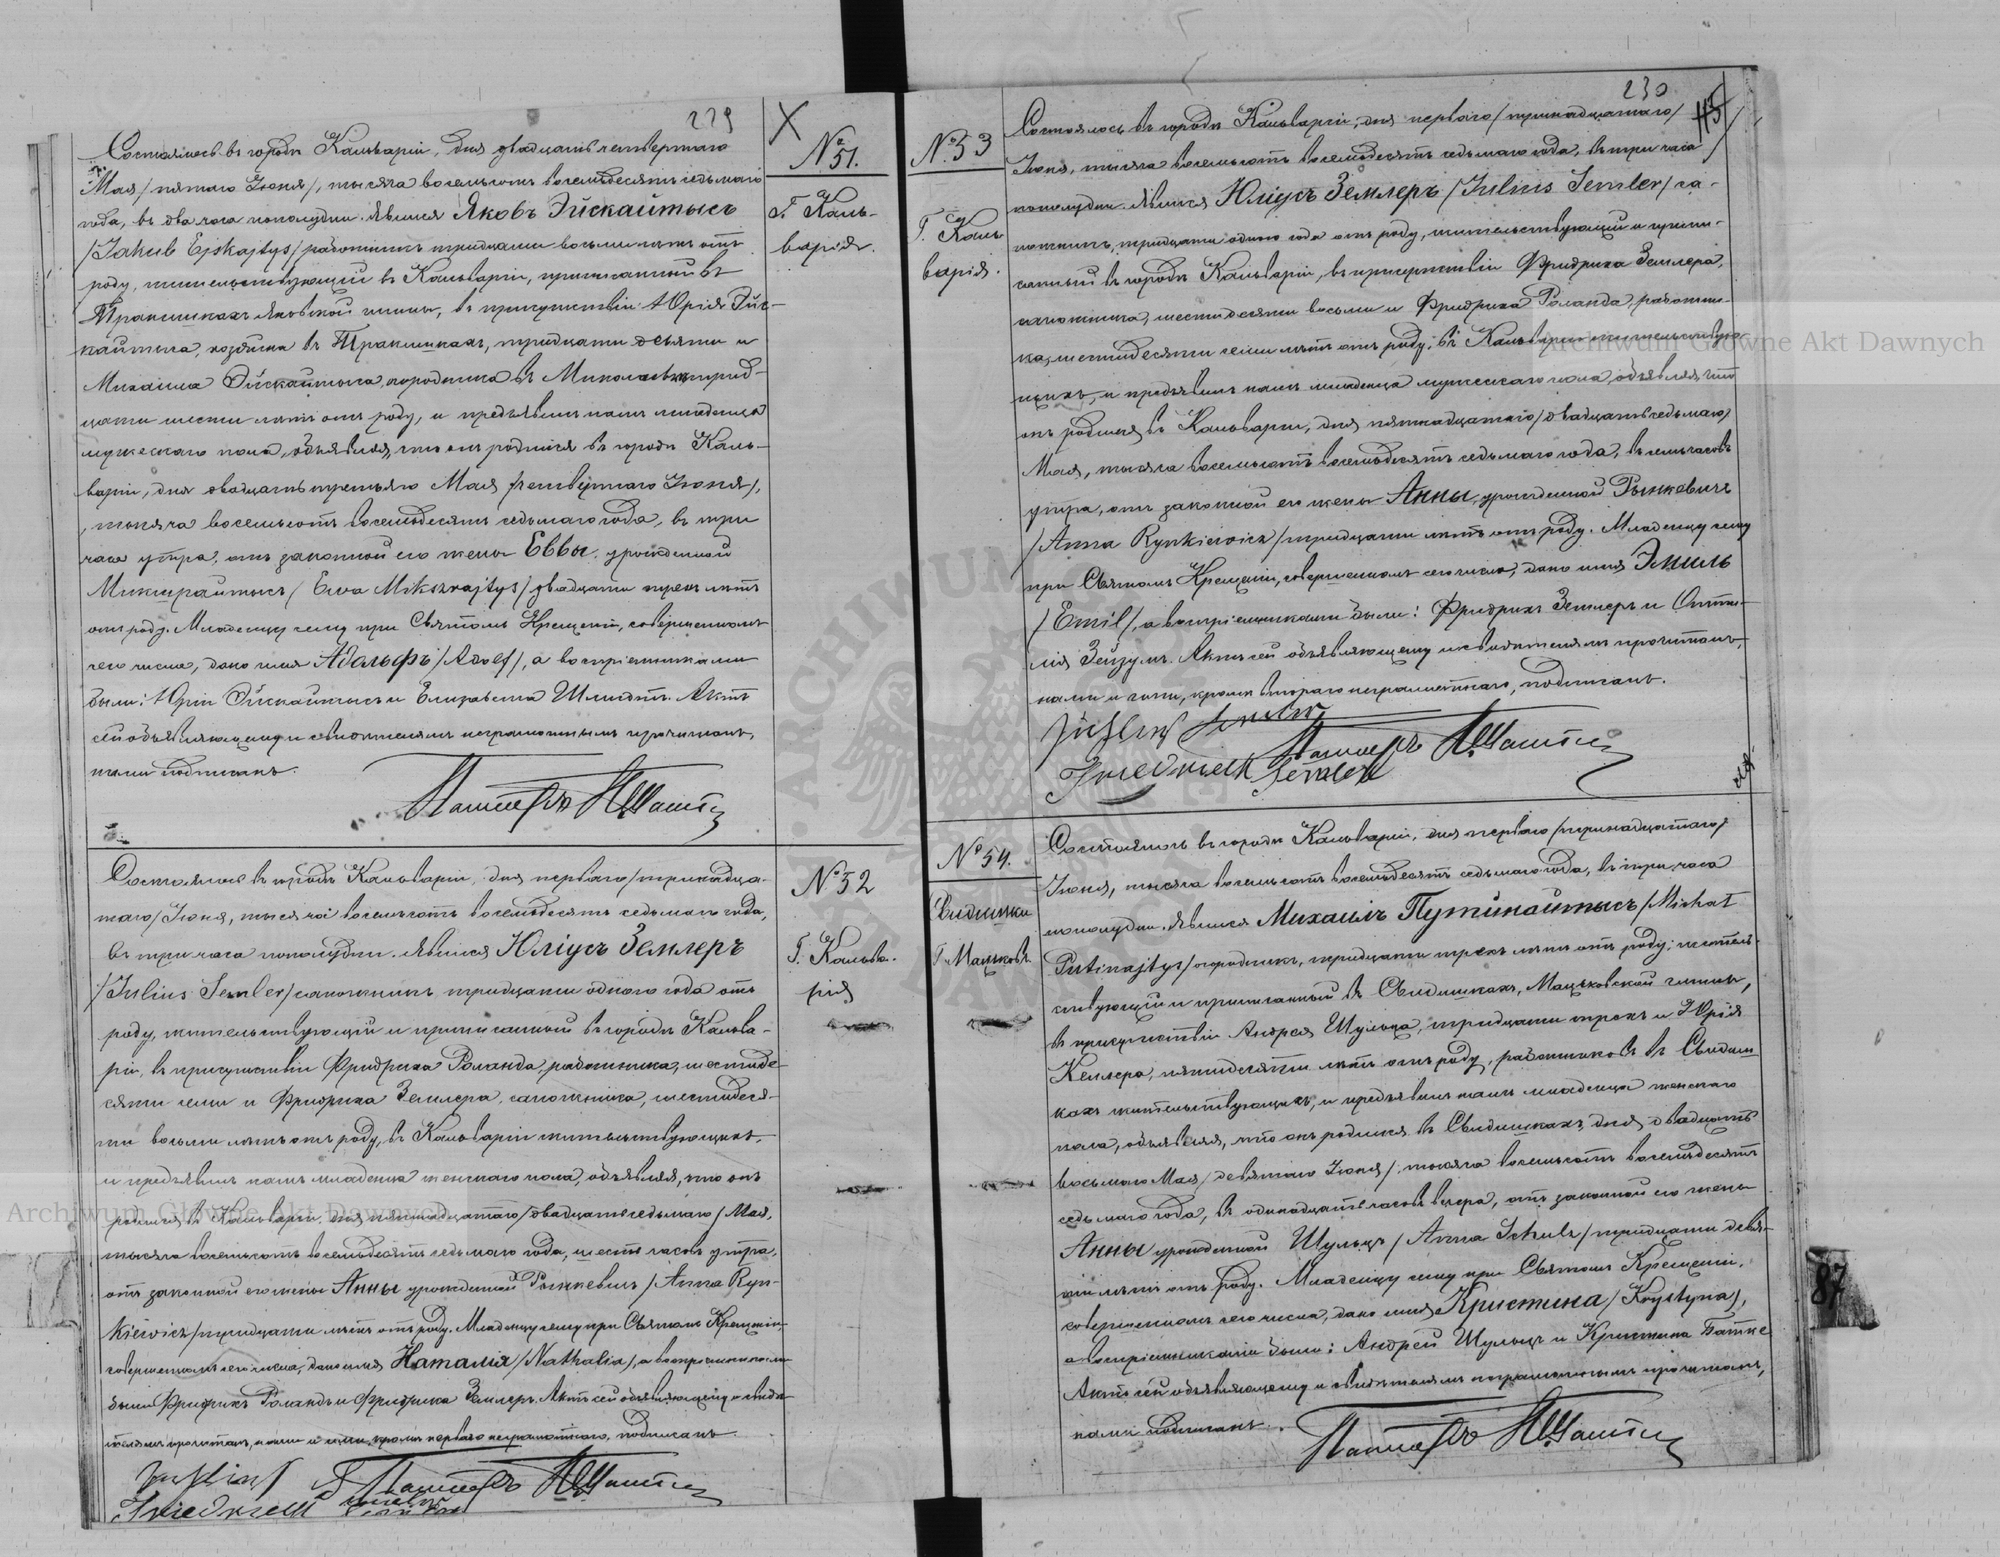 229
X
№ 51.
Г. Каль-
варія.
Состоялось въ городѣ Кальваріи, дня двадцать четвертаго
Мая /пятаго Іюня/, тысяча восемьсотъ восемьдесятъ седьмаго
года, въ два часа пополудни. Явился Яковъ Эйскайтысъ
/Jakub Ejskajtys/ работникъ тридцати восьми лѣтъ отъ
роду, жительствующій въ Кальваріи, приписанный въ
Тракишкахъ Яновской гмины, въ присутствіи: Юрія Эйс-
кайтыса, хозяина въ Тракишкахъ, тридцати девяти и
Михаила Эйскайтыса, огородника въ трид-
цати шести лѣтъ отъ роду, и предъявилъ намъ младенца
мужескаго пола, объявляя, что онъ родился въ городѣ Каль-
варіи, дня двадцать третьяго Мая /четвертаго Іюня/,
тысяча восемьсотъ восемьдесятъ седьмаго года, въ три
часа утра, отъ законной его жены Еввы, урожденной
Микшрайтысъ /Ewa Mikszrajtys/ двадцати трехъ лѣтъ
отъ роду. Младенцу сему при Святомъ Крещеніи, совершенномъ
сего числа, дано имя Адольфъ /Adolf/, а воспріемниками
были: Юрій Эйскайтысъ и Елизавета Шмидтъ. Актъ
сей объявляющему и свидѣтелямъ неграмотнымъ прочитанъ,
нами подписанъ.
Пасторъ
№ 52
Г. Кальва-
рія
Состоялось въ городѣ Кальваріи, дня перваго /тринадца-
таго/ Іюня, тысяча восемьсотъ восемьдесятъ седьмаго года,
въ три часа пополудни. Явился Юліусъ Землеръ
/Julius Semler/ сапожникъ, тридцати одного года отъ
роду, жительствующій и приписанный въ городѣ Кальва-
ріи, въ присутствіи Фридриха Роланда, работника, шестиде-
сяти семи и Фридриха Землера, сапожника, шестидеся-
ти восьми лѣтъ отъ роду, въ Кальваріи жительствующихъ,
и предъявилъ намъ младенца женскаго пола, объявляя, что онъ
родился въ Кальваріи, дня пятнадцатаго /двадцать седьмаго/ Мая,
тысяча восемьсотъ восемьдесятъ седьмаго года, шесть часовъ утра,
отъ законной его жены Анны урожденной Рынкевичъ /Anna Ryn-
kiewicz/ тридцати лѣтъ отъ роду. Младенцу сему при Святомъ Крещеніи,
совершенномъ сего числа, дано имя Наталія /Nathalia/, а воспріемниками
были Фридрихъ Роландъ и Фридрика Землеръ. Актъ сей объявляющему и свидѣ-
телямъ прочитанъ, нами и ими, кромѣ перваго неграмотнаго, подписанъ.
Пасторъ
Friedrich
230
№ 53
Г. Каль-
варія.
Состоялось въ городѣ Кальваріи, дня перваго /тринадцатаго/
Іюня, тысяча восемьсотъ восемьдесятъ седьмаго года, въ три часа
пополудни. Явился Юліусъ Землеръ /Julius Semler/ са-
пожникъ, тридцати одного года отъ роду, жительствующій и припи-
санный въ городѣ Кальваріи, въ присутствіи Фридриха Землера,
сапожника, шестидесяти восьми и Фридриха Роланда, работни-
ка, шестидесяти семи лѣтъ отъ роду, въ Кальваріи жительствую-
щихъ, и предъявилъ намъ младенца мужескаго пола, объявляя, что
онъ родился въ Кальваріи, дня пятнадцатаго /двадцать седьмаго/
Мая, тысяча восемьсотъ восемьдесятъ седьмаго года, въ семь часовъ
утра, отъ законной его жены Анны, урожденной Рынкевичъ
/Anna Rynkiewicz/ тридцати лѣтъ отъ роду. Младенцу сему
при Святомъ Крещеніи, совершенномъ сего числа, дано имя Эмиль
/Emil/, а воспріемниками были: Фридрихъ Землеръ и Отти-
лія Зейзумъ. Актъ сей объявляющему и свидѣтелямъ прочитанъ,
нами и ими, кромѣ втораго неграмотнаго, подписанъ.
Semler
Пасторъ
Friedrich Semler
№ 54.
Свидишки
Г. Мацковъ.
Состоялось въ городѣ Кальваріи, дня перваго /тринадцатаго/
Іюня, тысяча восемьсотъ восемьдесятъ седьмаго года, въ три часа
пополудни. Явился Михаилъ Путинайтысъ /Michał
Putinajtys/ огородникъ, тридцати трехъ лѣтъ отъ роду, житель-
ствующій и приписанный въ Свидишкахъ, Мацковской гмины,
въ присутствіи Андрея Шульца, тридцати трехъ и Юрія
Келлера, пятидесяти лѣтъ отъ роду, работниковъ въ Свидиш-
кахъ жительствующихъ, и предъявилъ намъ младенца женскаго
пола, объявляя, что онъ родился въ Свидишкахъ, дня двадцать
восьмаго Мая /девятаго Іюня/, тысяча восемьсотъ восемьдесятъ
седьмаго года, въ одинадцать часовъ вечера, отъ законной его жены
Анны урожденной Шульцъ /Anna Schulz/ тридцати девя-
ти лѣтъ отъ роду. Младенцу сему при Святомъ Крещеніи,
совершенномъ сего числа, дано имя Кристина /Krystyna/,
а воспріемниками были: Андрей Шульцъ и Кристина Батке
Актъ сей объявляющему и свидѣтелямъ неграмотнымъ прочитанъ,
нами подписанъ.
Пасторъ
87
Archiwum Główne Akt Dawnych
Archiwum Główne Akt Dawnych